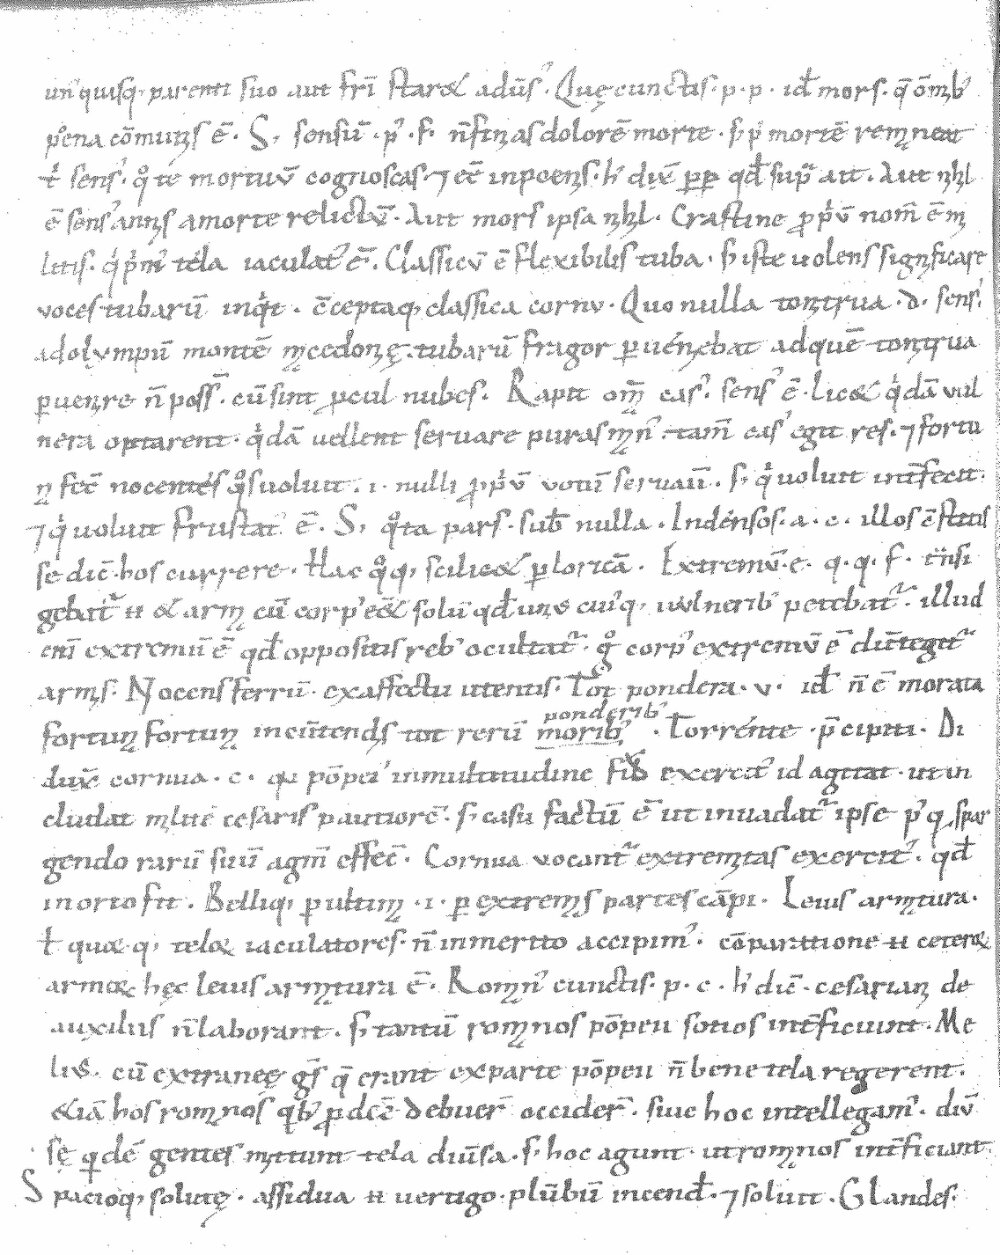 un quisq; parenti suo aut frī staret aduſ. Quę cunctis. p. p. id mors. q̄ omīb
poena cōmunis ē. S; sensū. p. f. n̄ finias dolorē morte. s; p mortē remaneat
ł sens. qo te mortuū cognoscas. ⁊ ēē in poenis. h diuē pp qđ supͣ ait. Aut nihil
ē sens animis a morte relictū. Aut mors ipsa nihil. Crastine pprū nom̄ ē mi
litis. qͥ pͥm tela iaculat ē. Classicū ē flexibilis tuba. s; iste uolens significare
uoces tubarū inqͥt. ēceptaq; classica cornu. Quo nulla tonitrua. d. sens.
ad olympiū montē macedonię. tubarū fragor pueniebat ad quē tonitrua
puenire n̄ poss̄. cū sint pcul nubes. Rapit om̄a cas. sens ē. licet qͥdā uul
nera optarent. qͥdā uellent seruare puras man. tam̄ cas egit res. ⁊ fortu
na fec̄ nocentes qos uoluit. i. nulli pprū uotū seruauit. s; qͥ uoluit int̄fecit.
⁊ qͥ uoluit frustat ē. S; qo̅ta pars. sub̄ nulla. In densos. a. c. illos ē stitis
se dic̄. hos currere. Hac qoq; scilicet p loricā. Extremū. e. q. q. f. t̄nsi
gebat n̄ & arma cū corp eēt solū qđ unus cuiq; uulnerib petebat. illud
enī extremū ē qđ oppositis reb ocultat. go corp extremū ē dū tegit
armis. Nocens ferrū. ex affectu utentis. Tot pondera. u. id n̄ ē morata
fortuna fortuna incūtendis tot rerū morib ponderib. Torrente. p̄cipiti. Di
duxē cornua. c. qa pōpei in multitudine fisus exercit id agitat. ut in
cludat milite cesaris pautiorē. s; casu factū ē ut inuadat ipse p q; spar
gendo rarū suū agm̄ effec̄. Cornua uocant extremitas exercit. qđ
in orto fit. Belliq; p ultima. i. p extremis partes cāpi. Leuis armatura.
ł quae q; telae iaculatores. n̄ inmerito accipim. cōparitione n̄ ceterae
armae hęc leuis armatura ē. Roman cunctis. p. c. h dic̄. cesariani de
auxiliis n̄ laborant. s; tantū romanos pōpeii sotios int̄ficiunt. Me
lius. cū extraneę gs̄ q̄ erant ex parte pōpeii n̄ bene tela regerent.
etiā hos romanos qͥb pdeē debuer̄ occider̄. siue hoc intellegam. diū
sę qdē gentes mittunt tela diuīsa. s; hoc agunt. ut romanos int̄ficiant.
Spacioq; solutę. assidua n̄ uertigo. plūbū incend̄. ⁊ soluit. Glandes.